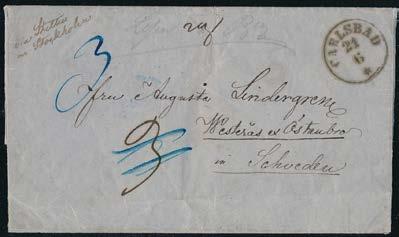 via Stettin
in Stockholm
CARLSBAD
24
6
3
Frau Augusta Lindergren
Westerås
in Schweden
3